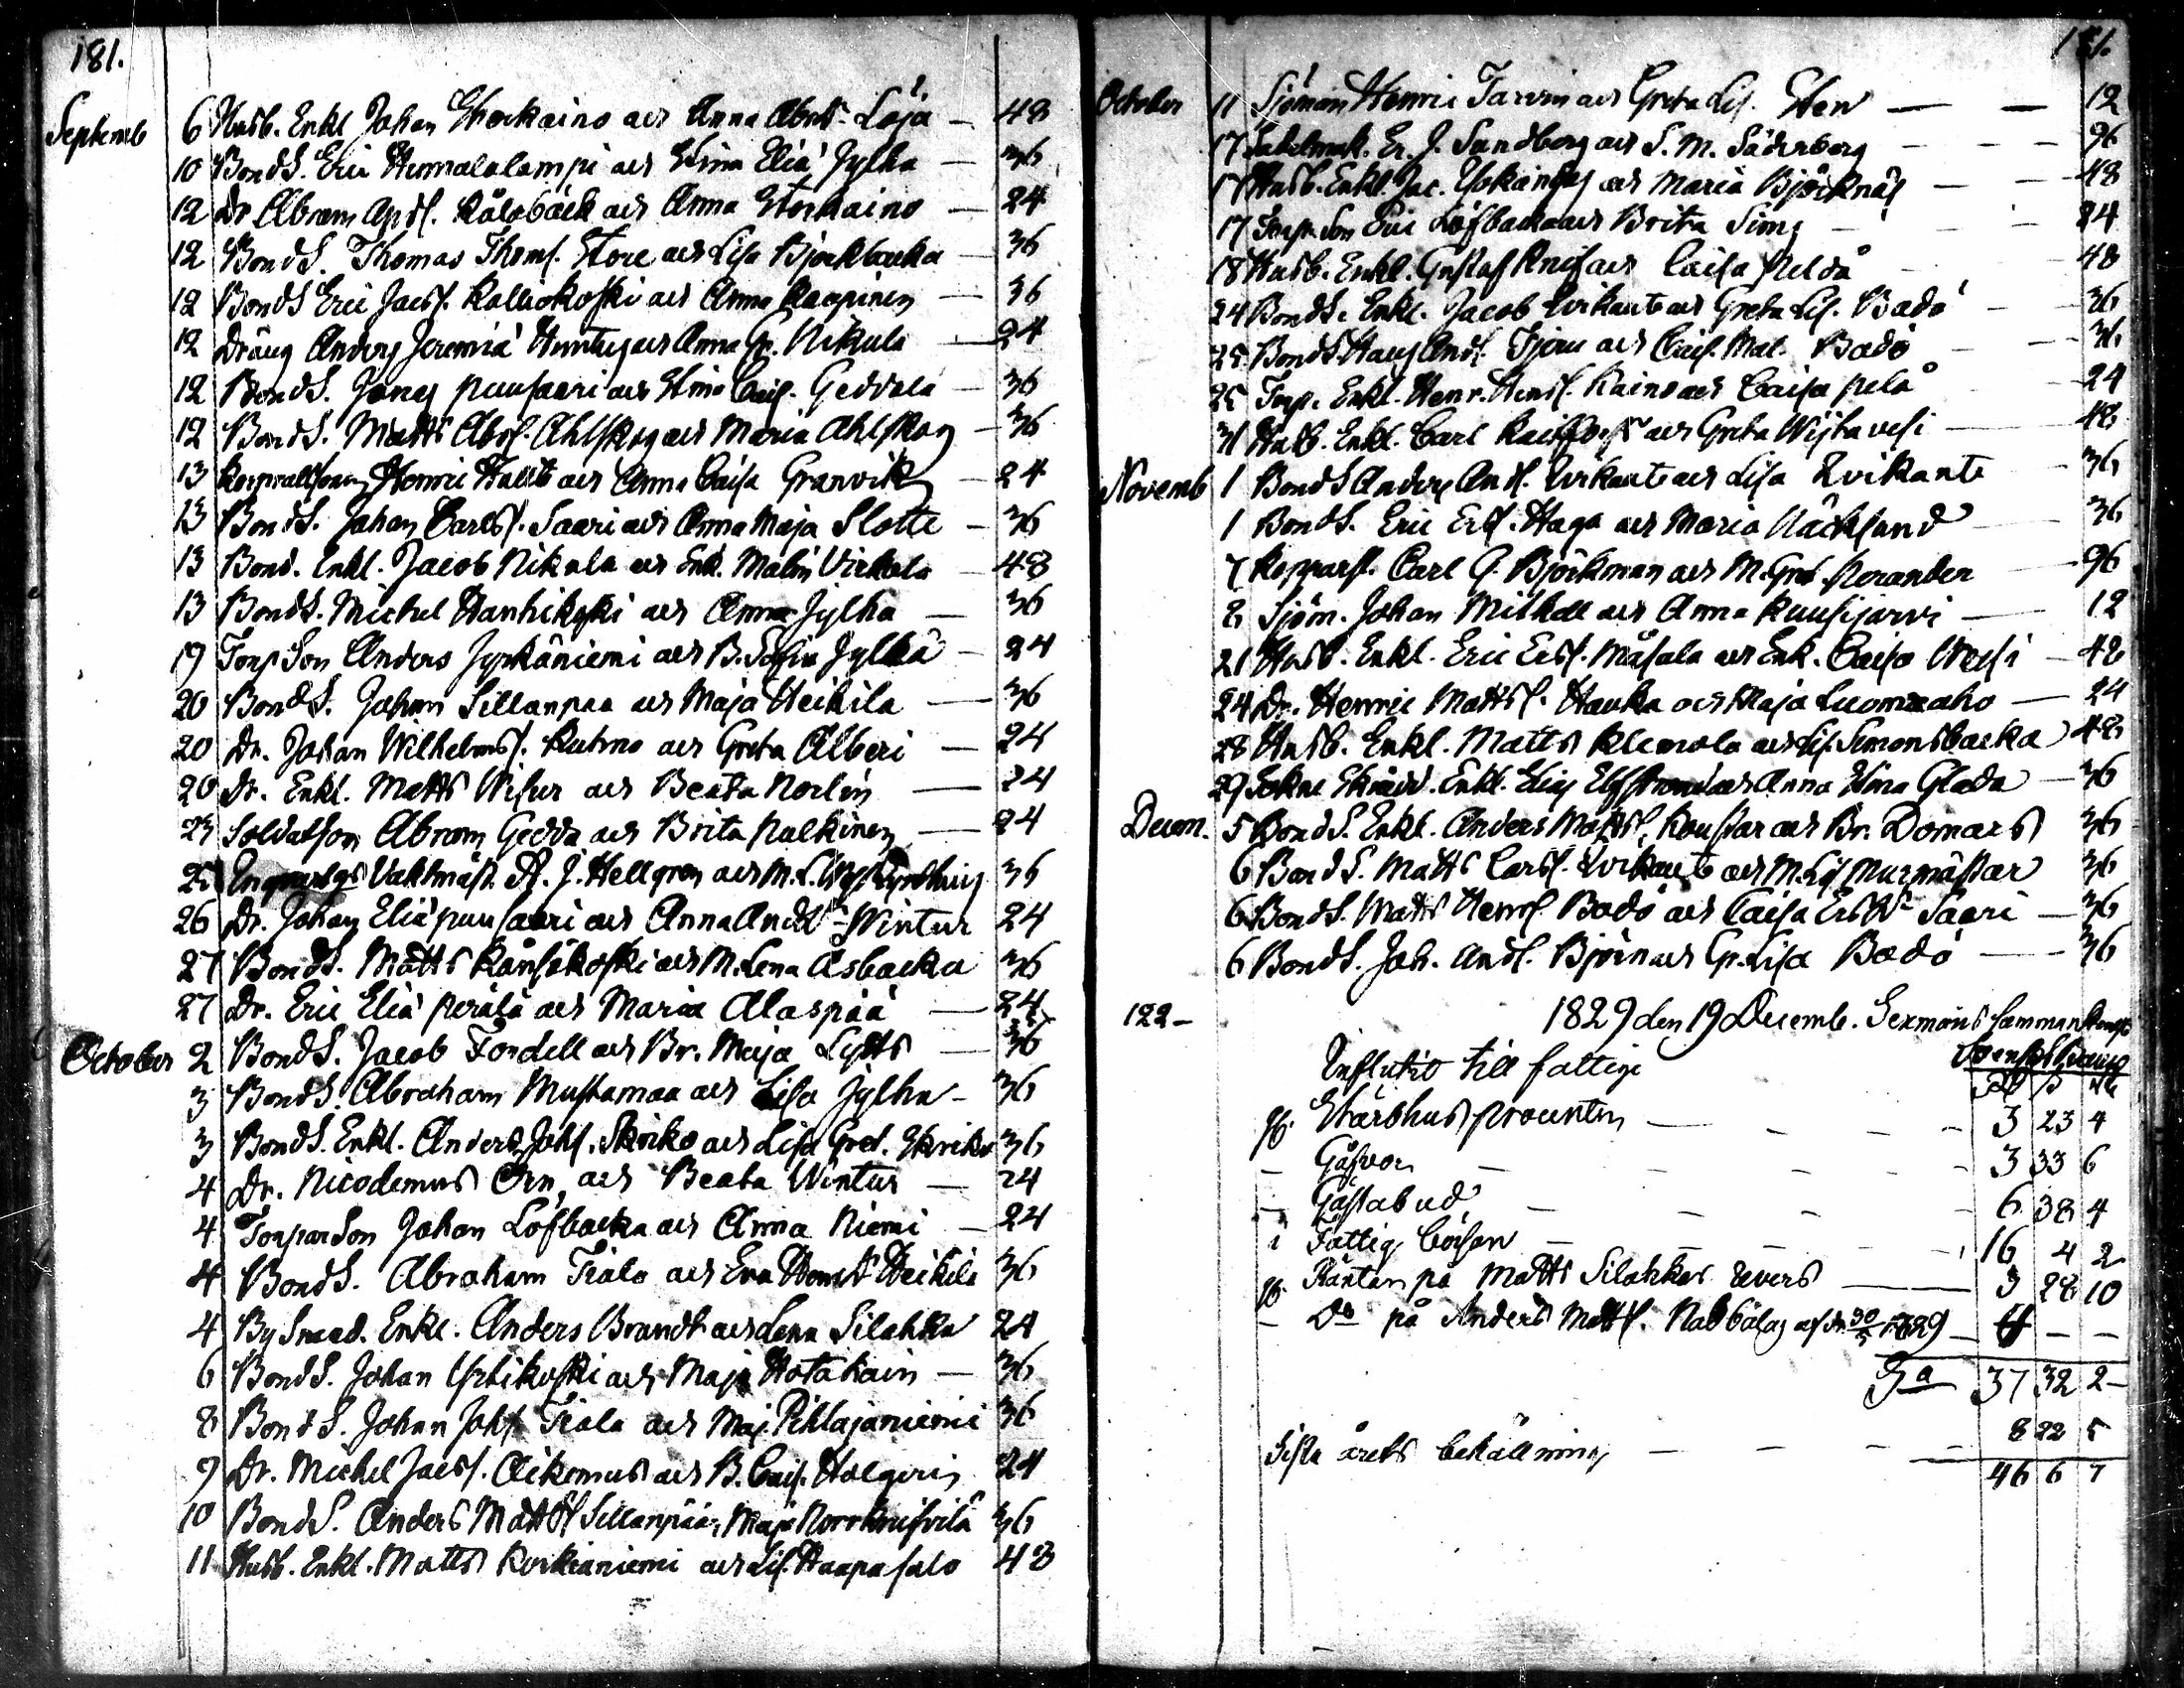 181.
Septemb 6 Husb. Enkl Johan Storkaino och Anna Abrts. Löja — 48
10 BondS. Eric Hemalalampi och Stina Eliæ Jylha — 36
12 Dr Abram Ands. Kålobäck och Anna Storkaino — 24
12 BondS. Thomas Thoms. Store och Lisa Björkbacka — 36
12 BondS Eric Jacss. Kalliokoski och Anna Kaupinen — 36
12 Dräng Anders Jeremiæ Huntus och Anna Gr. Nikula — 24
12 BondS. Jonas Puusaari och Stina Cajs. Geddala — 36
12 BondS. Matts Abrs. Ahlskog och Maria Ahlskog — 36
13 Henric och Anna Caisa Granvik — 24
13 BondS. Johan Carlss. Saari och Anna Maja Slotte — 36
13 Bond. Enkl. Jacob Nikula och Enk. Malin Virkala — 48
13 BondS. Michel Hanhikoski och Anna Jylha — 36
19 Torp Son Anders Jyrkäniemi och B. Sofia Jylhä — 24
20 BondS. Johan Sillanpaa och Maja Heikila — 36
20 Dr. Johan Wilhelmss. Kuhno och Greta Alberi — 24
20 Dr. Enkl. Matts Wisur och Beata Norlin — 24
25 Soldatson Abram Gedda och Brita Palkinen — 24
25 Vaktmäst. A. J. Hellgren och M. L. 36
26 Dr. Johan Eliæ Puusaari och Anna Andrs Wintur 24
27 BondS. Matts Kånsäkoski och M. Lena Åsbacka 36
27 Dr. Eric Eliæ Perälä och Maria Alaspää — 24
October 2 BondS. Jacob Fordell och Br. Maja Lytts — 36
3 BondS. Abraham Mustamaa och Lisa Jylha — 36
3 BondS. Enkl. Anders Johs. Skriko och Lisa Gret. Skriko 36
4 Dr. Nicodemus Örn, och Beata Wintur — 24
4 Torpar Son Johan Löfbacka och Anna Niemi — 24
4 BondS. Abraham Tiala och Eva Heikilä 36
4 By Smed. Enkl. Anders Brandt och Lena Silahka 24
6 BondS. Johan Yrtikoski och Maja Hotakain — 36
8 BondS. Johan Johs Tiala och Maj. Pihlajaniemi 36
9 Dr. Michel Jacss. Aikomus och B. Cajs. Holgeris 24
10 BondS. Anders Matss Sillanpää, Maja Norrknifvilä 36
11 Husb. Enkl. Matts Korkianiemi och Lis. Haapasalo 48
181.
October 11 Sjöman Henric Tarvin och Greta Lis. Sten — — 12
17 Sadelmak. Er. J. Sandberg och S. M. Söderberg — — — 96
17 Husb. Enkl. Jac. Ykangas och Maria Björknäs — — 48
17 Torp. Son Eric Löfbacka och Brita Simq — — — 24
18 Husb. Enkl. Gustaf Knif och Caisa Peldå — — 48
24 BondS. Enkl. Jacob Evikante och Greta Lis. Bado — 36
25 BondS. Hans Ands. Tjäru och Cais. Mal. Bodö — — 36
25 Torp. Enkl. Henr. Henrs. Kaino och Caisa Pelå — 24
31 Husb. Enkl. Carl och Greta Wiitavesi — 48
Novemb 1 BondS Anders Ands. Evikante och Lisa Evikante — 36
1 BondS. Eric Erss. Haga och Maria Näcksund — 36
7 Kopparsl. Carl G. Björkman och M. Gret. Nerander — 96
8 Sjöm. Johan Mithell och Anna Kuusijärvi — 12
21 Husb. Enkl. Eric Erss. Måsala och Enk. Caisa Wesi — 48
24 Dr. Henric Matss. Hauka och Maja Luomaaho — 24
28 Husb. Enkl. Matts Klemola och Lis. Simonsbacka 48
29 Sokne Skrädd. Enkl. Elias Elfstrand och Anna Stina Glada — 36
Decem. 5 BondS. Enkl. Anders Matss. Koustar och Br. Domars 36
6 BondS. Matts Carss. Evikant och M. Lis Murmästar 36
6 BondS. Matts Henrs. Bodö och Caisa Ersdr Saari — 36
6 BondS. Joh. Ands. Björn och Gr. Lisa Bodö — 36
122 — 1829 den 19 Decemb. Sexmans Samman
Influtit till fattige
Rd ß rst
pr. Stärbhus procenten — — — 3 23 4
— Gåfvor — — — 3 33 6
— Gästabud, — — — 6 38 4
i Fattig börsen — — — 16 4 2
pr. Räntan på Matts Silahkas revers — 3 28 10
— Do på Anders Matts. Nabbälas af d. 30/5 1829 — 4 — —
Sa 37 32 2 —
Sista årets behållning — — — 8 22 5
46 6 7